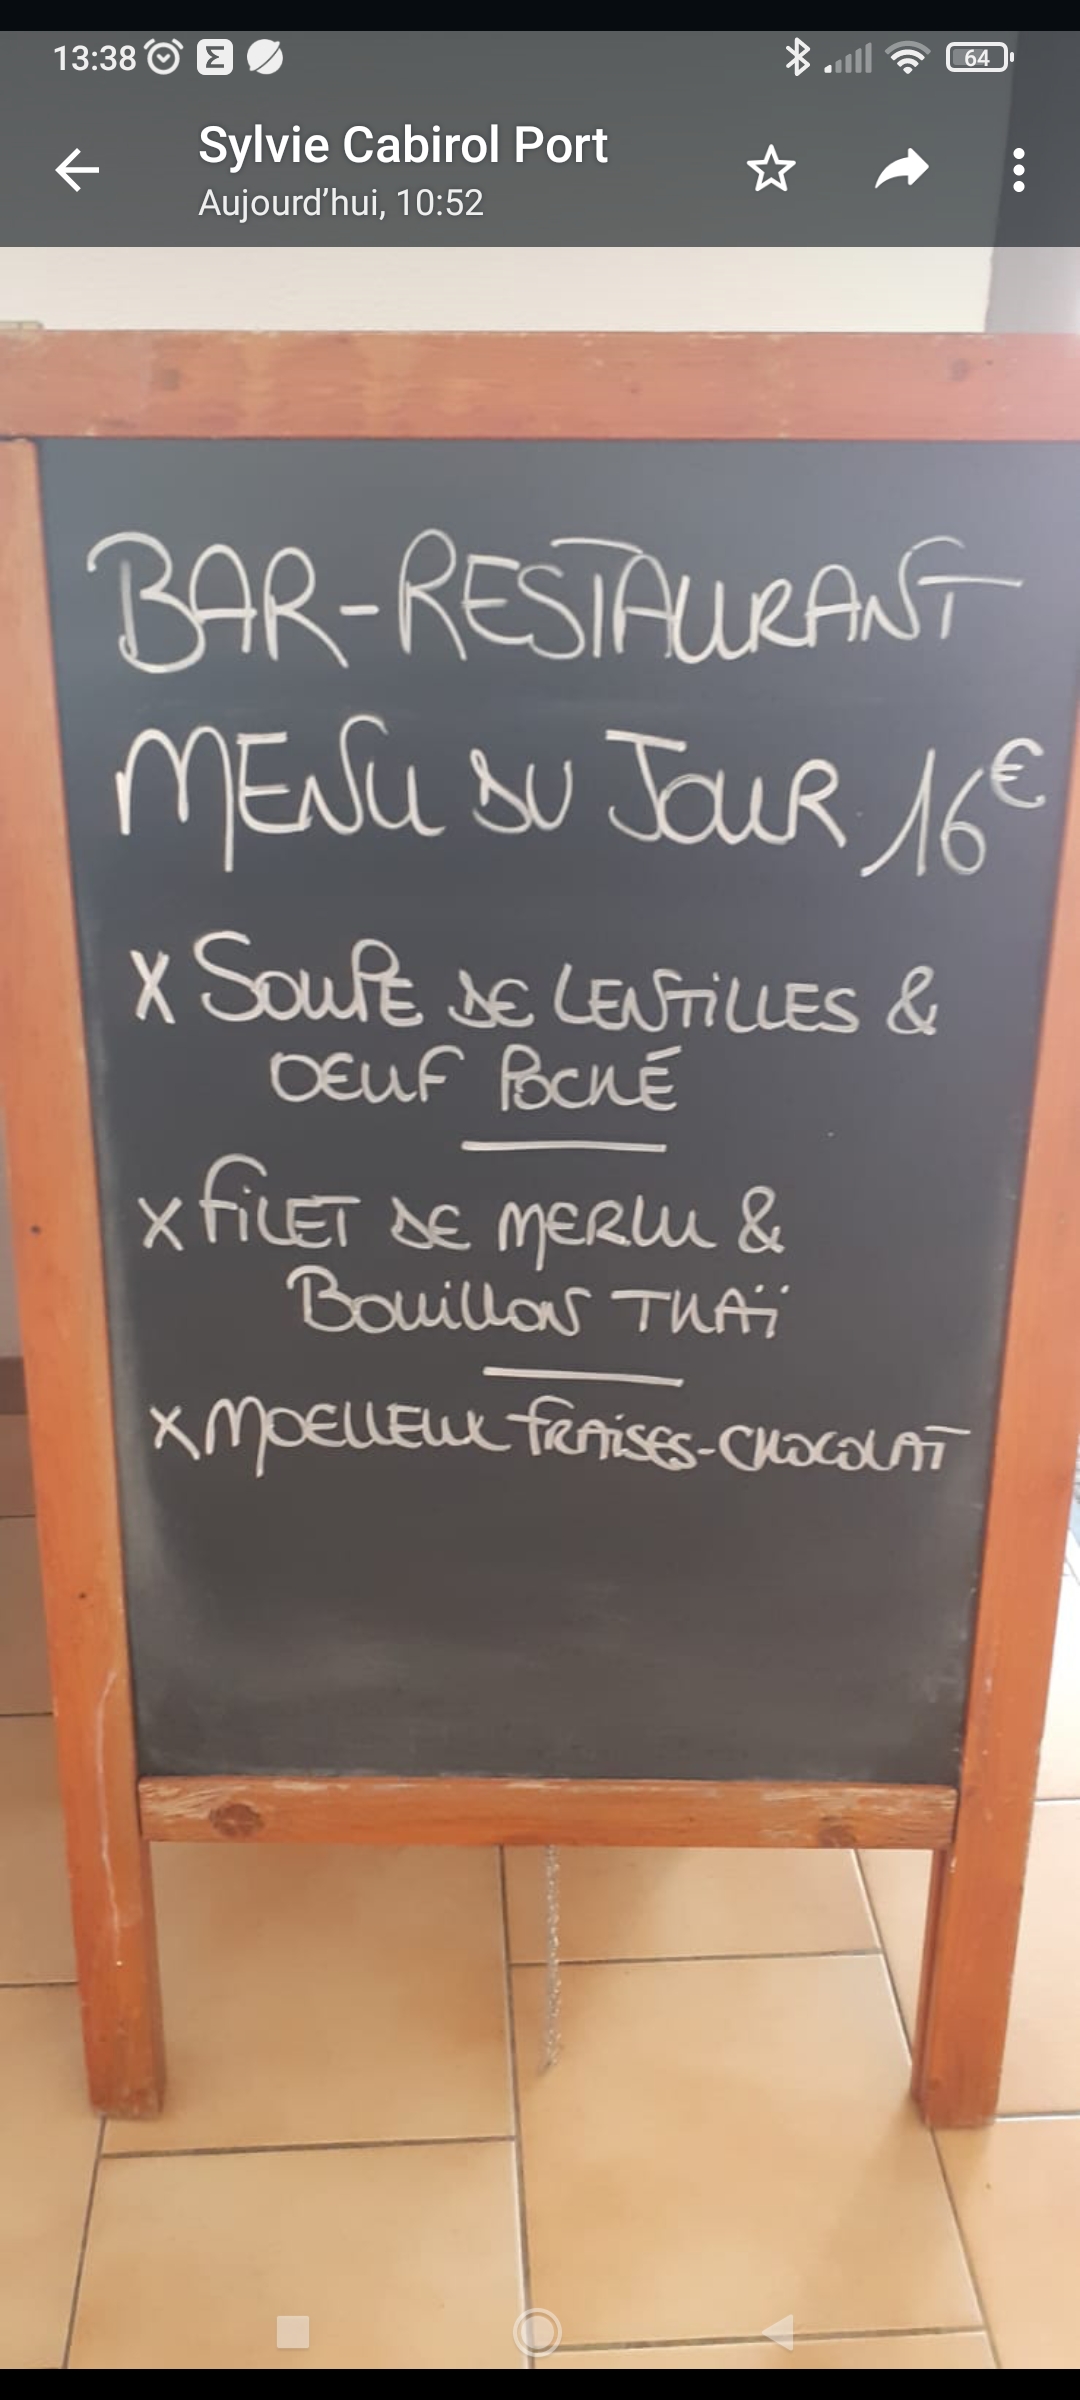 13:38
64
Sylvie Cabirol Port
Aujourd’hui, 10:52
BAR-RESTAURANT
MENU DU JOUR 16€
X SOUPE DE LENTILLES &
OEUF POCHÉ
X FILET DE MERLU &
BOUILLON THAÏ
X MOELLEUX FRAISES-CHOCOLAT